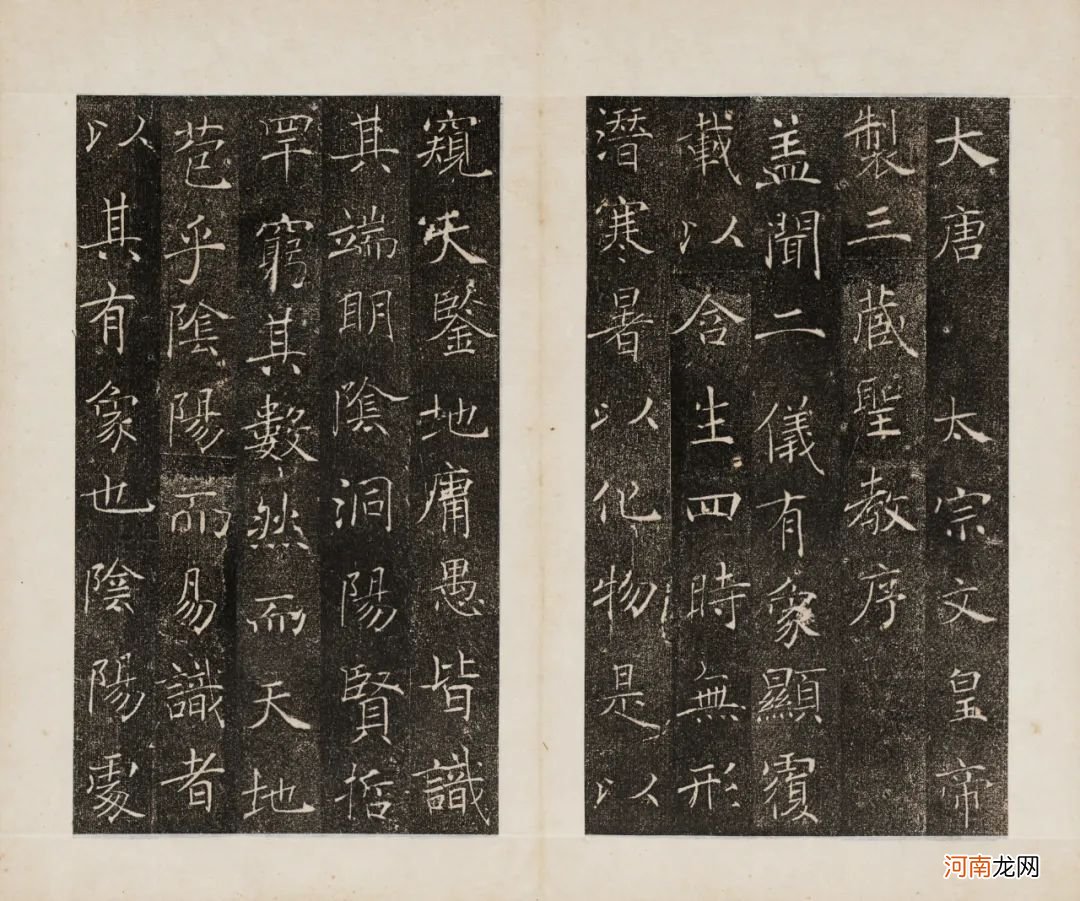 大唐太宗文皇帝
製三藏聖教序
盖聞二儀有象顯覆
載以含生四時無形
潛寒暑以化物是以
窺天鑒地庸愚皆識
其端明陰洞陽賢哲
罕窮其數然而天地
苞乎陰陽而易識者
以其有象也陰陽處
河南龙网